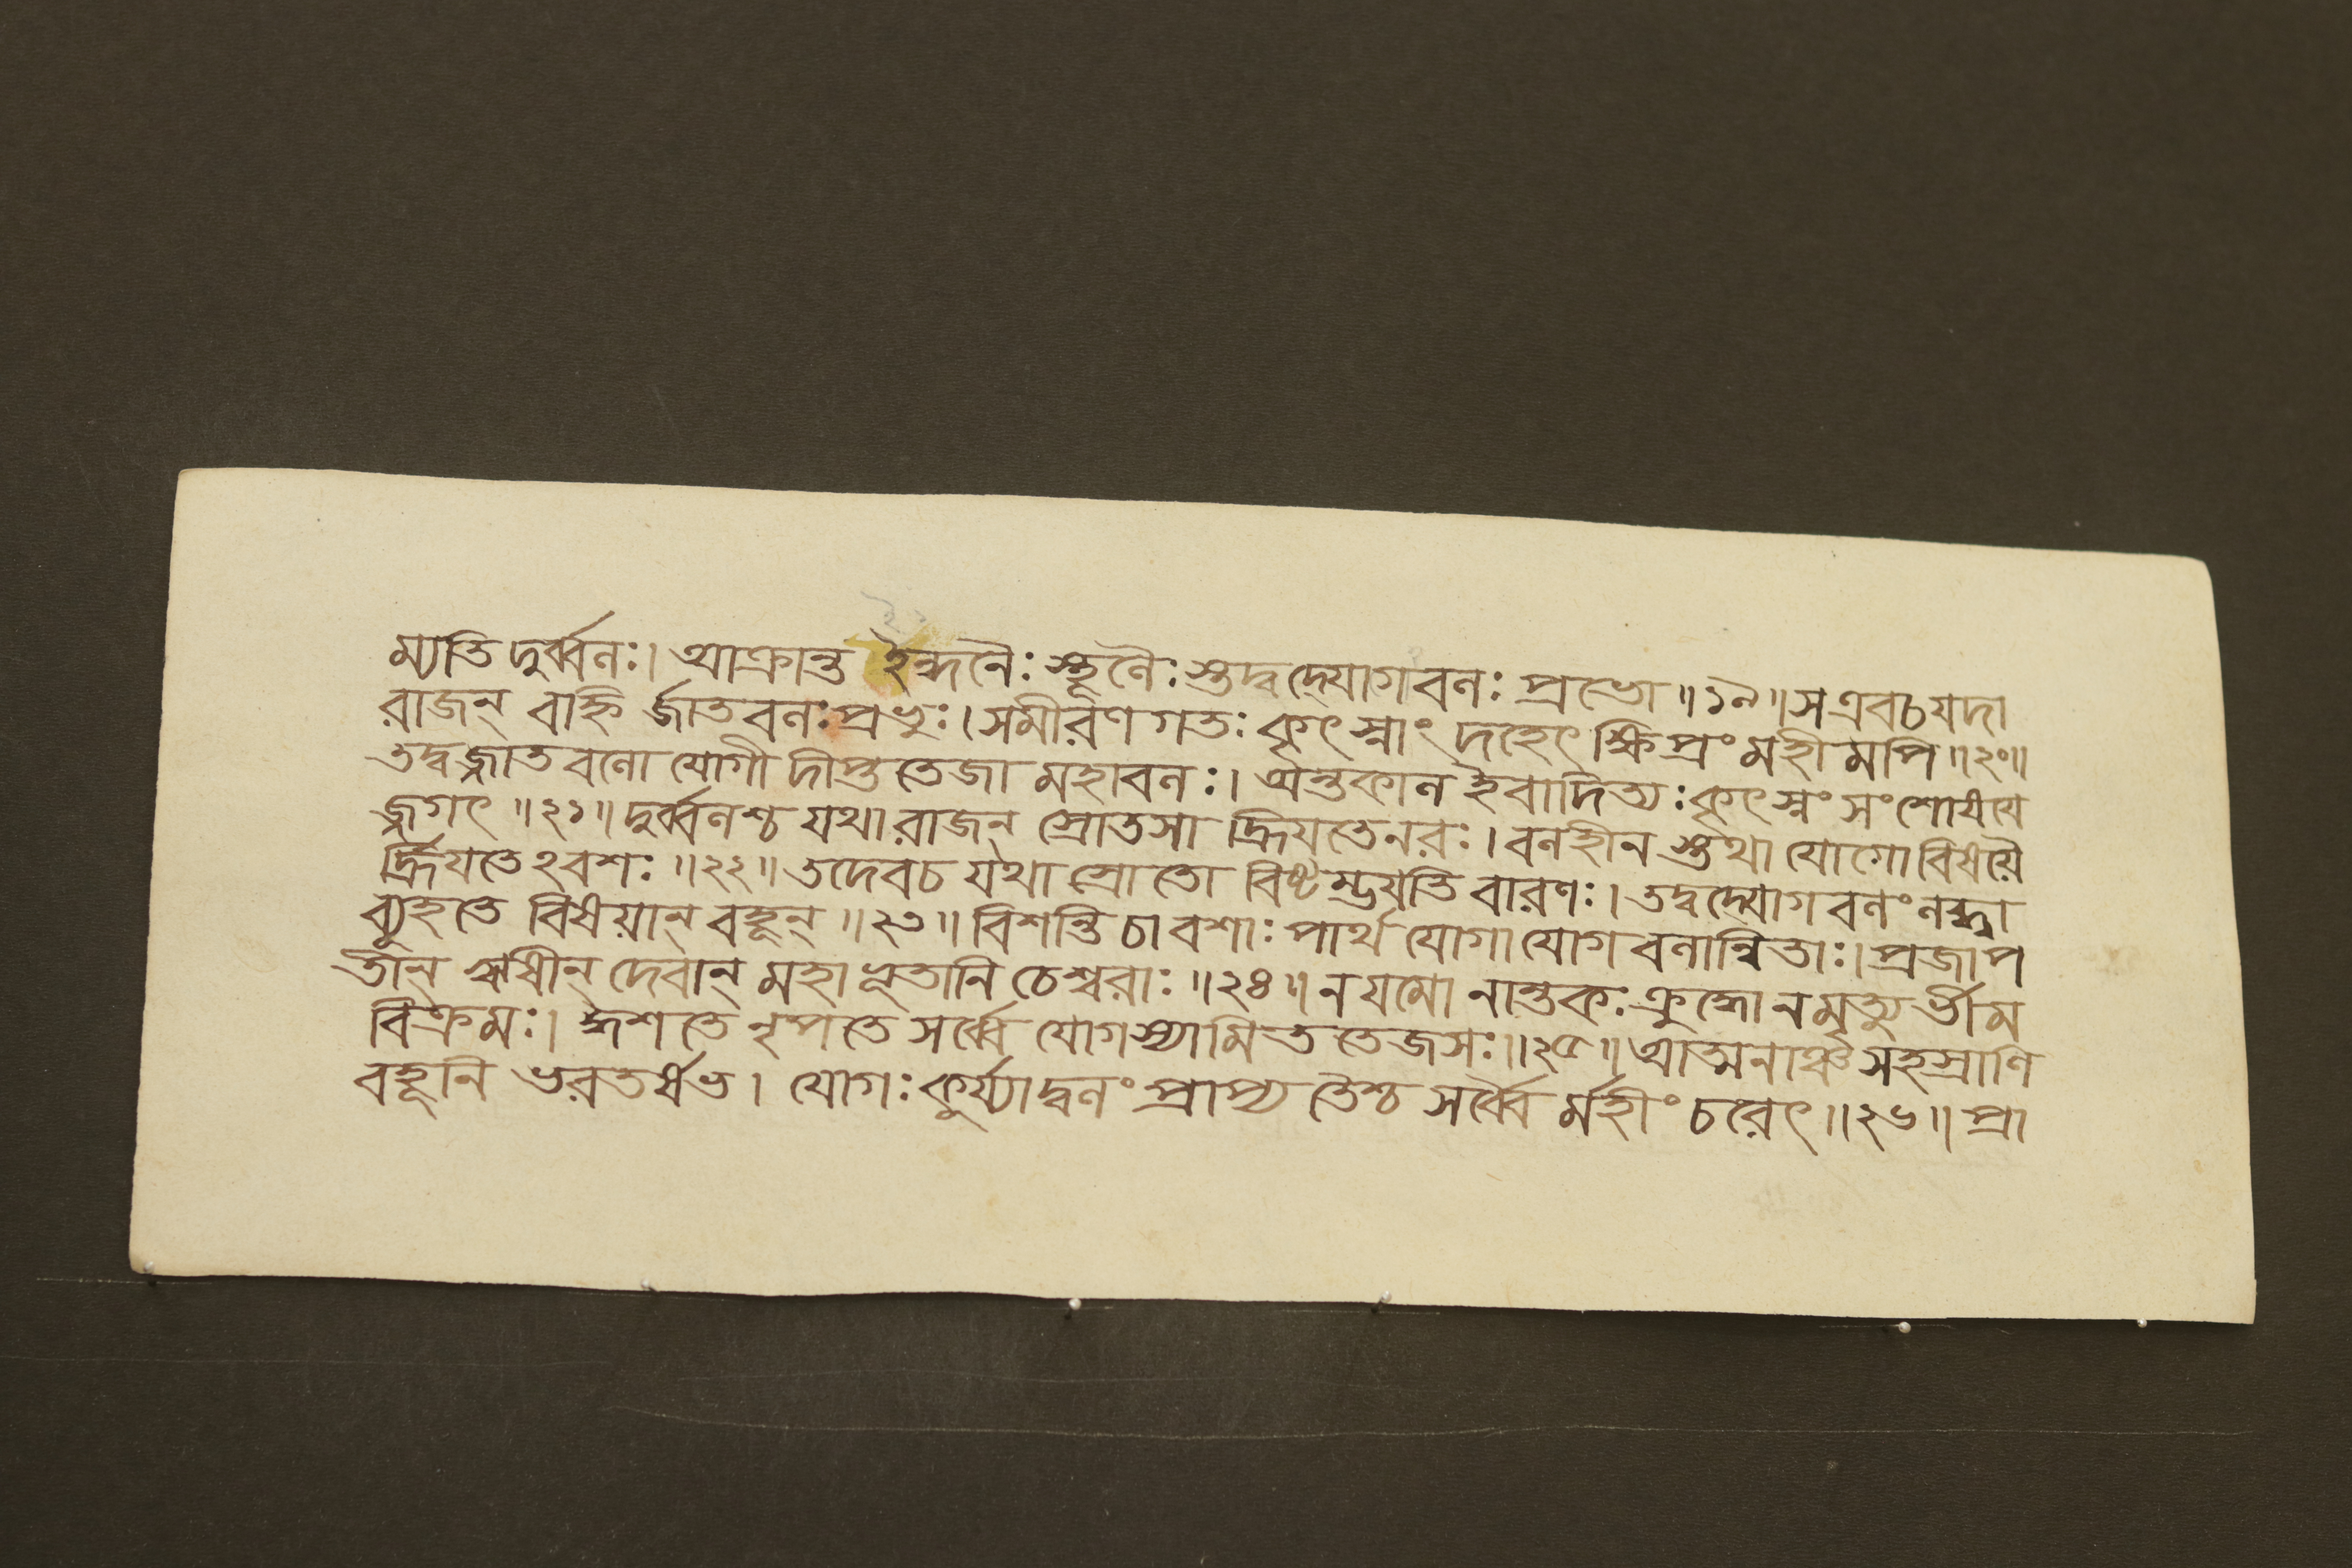 ম্যতি দুর্ব্বলঃ। আক্রান্ত ইন্ধনৈঃ স্থূলৈঃ স্তদ্বদ্যোগবলঃ প্রভো॥১৯॥স এবচযদা
রাজন্ বহ্নি র্জাতবলঃপ্রভুঃ।সমীরণ গতঃ কৃৎস্নাং দহেৎ ক্ষিপ্রং মহী মপি॥২০॥
তদ্বজ্জাত বলো যোগী দীপ্ততেজা মহাবলঃ। অন্তকাল ইবাদিত্যঃকৃৎস্নং সংশোষয়ে
জ্জগৎ॥২১॥দুর্ব্বলশ্চ যথা রাজন্ স্রোতসা হ্রিয়তেনরঃ।বলহীন স্তথা যোগো বিষয়ৈ
র্হ্রিয়তেঽবশঃ॥২২॥তদেবচ যথা স্রোতো বিষ্টম্ভয়তি বারণঃ।তদ্বদ্যোগ বলং লব্ধ্বা
ব্যূহতে বিষয়ান্ বহূন্॥২৩॥বিশন্তি চাবশাঃ পার্থ যোগা যোগ বলান্বিতাঃ।প্রজাপ
তীন্ ঋষীন্ দেবান্ মহাভূতানি চেশ্বরাঃ॥২৪॥ন যমো নান্তকঃ ক্রুদ্ধো নমৃত্যু র্ভীম
বিক্রমঃ। ঈশতে নৃপতে সর্ব্বে যোগস্যামিত তেজসঃ॥২৫॥আত্মনাঞ্চ সহস্রাণি
বহূনি ভরতর্ষভ। যোগঃ কুর্য্যাদ্বলং প্রাপ্য তৈশ্চ সর্ব্বৈ র্মহীং চরেৎ॥২৬॥প্রা